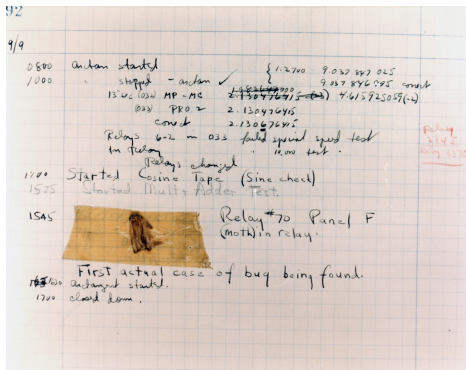 92
9/9
0800 antan started { 1.2700 9.037 847 025
1000 " stopped - antan ✓ 9.037 846 995 conect
13"uc (032) MP - MC 2.130476415 (-3) 4.615925059(-2)
(033) PRO 2 2.130476415
conect 2.130676415
Relays 6-2 in 033 failed special speed test
in Relay " 10,000 test .
Relays changed
1700 Started Cosine Tape (Sine check)
1525 Started Mult+Adder Test.
1545 Relay #70 Panel F
(moth) in relay.
First actual case of bug being found.
1630 antangent started.
1700 closed down.